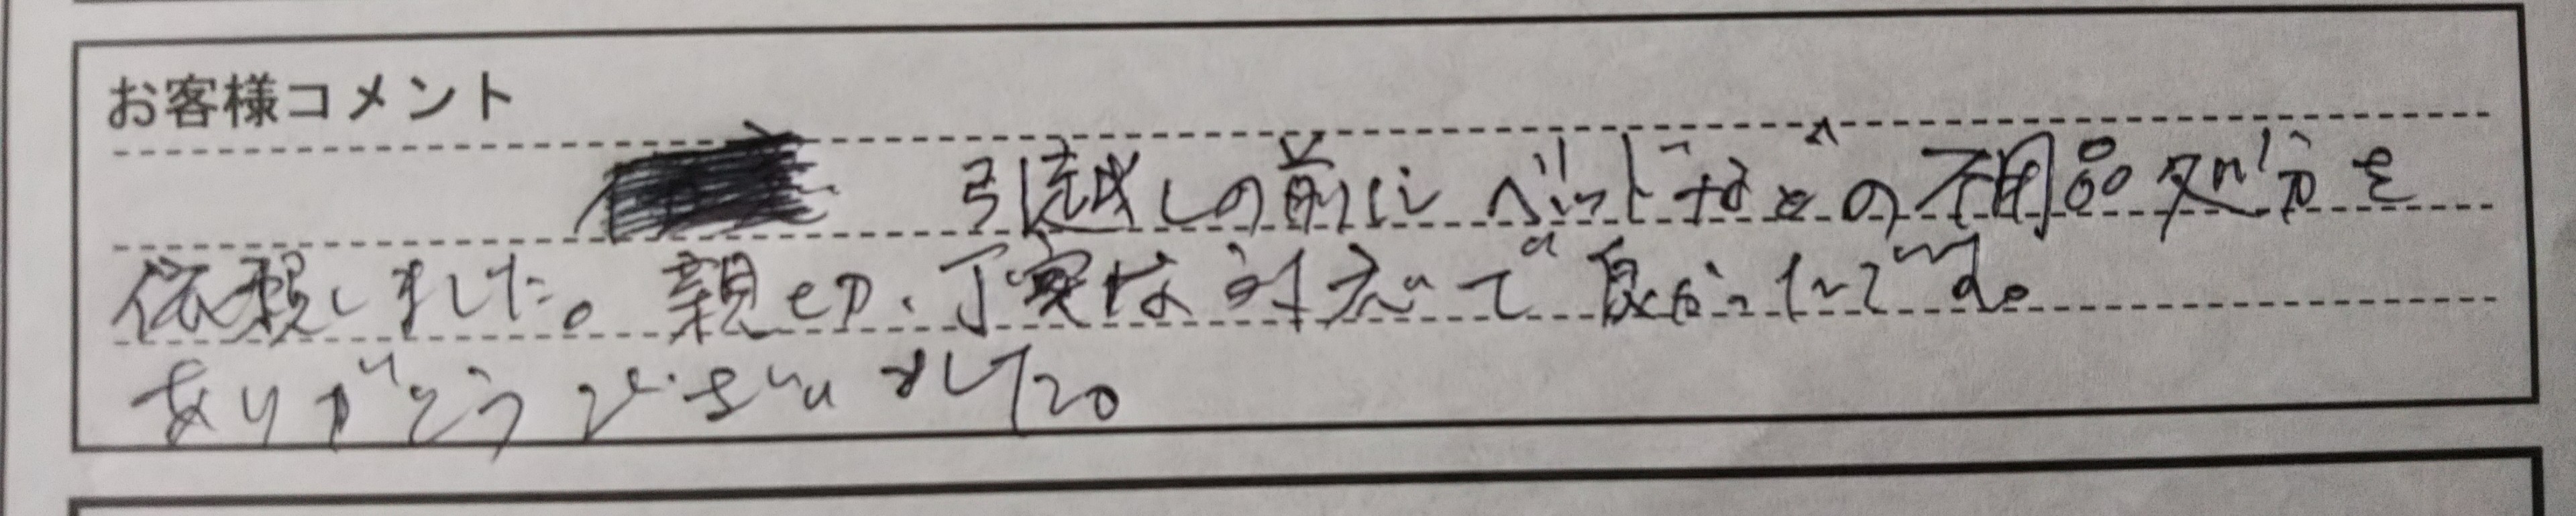 お客様コメント
引越しの前にベットなどの不用品処分を
依頼しました。親切、丁寧な対応で良かったです。
ありがとうございました。